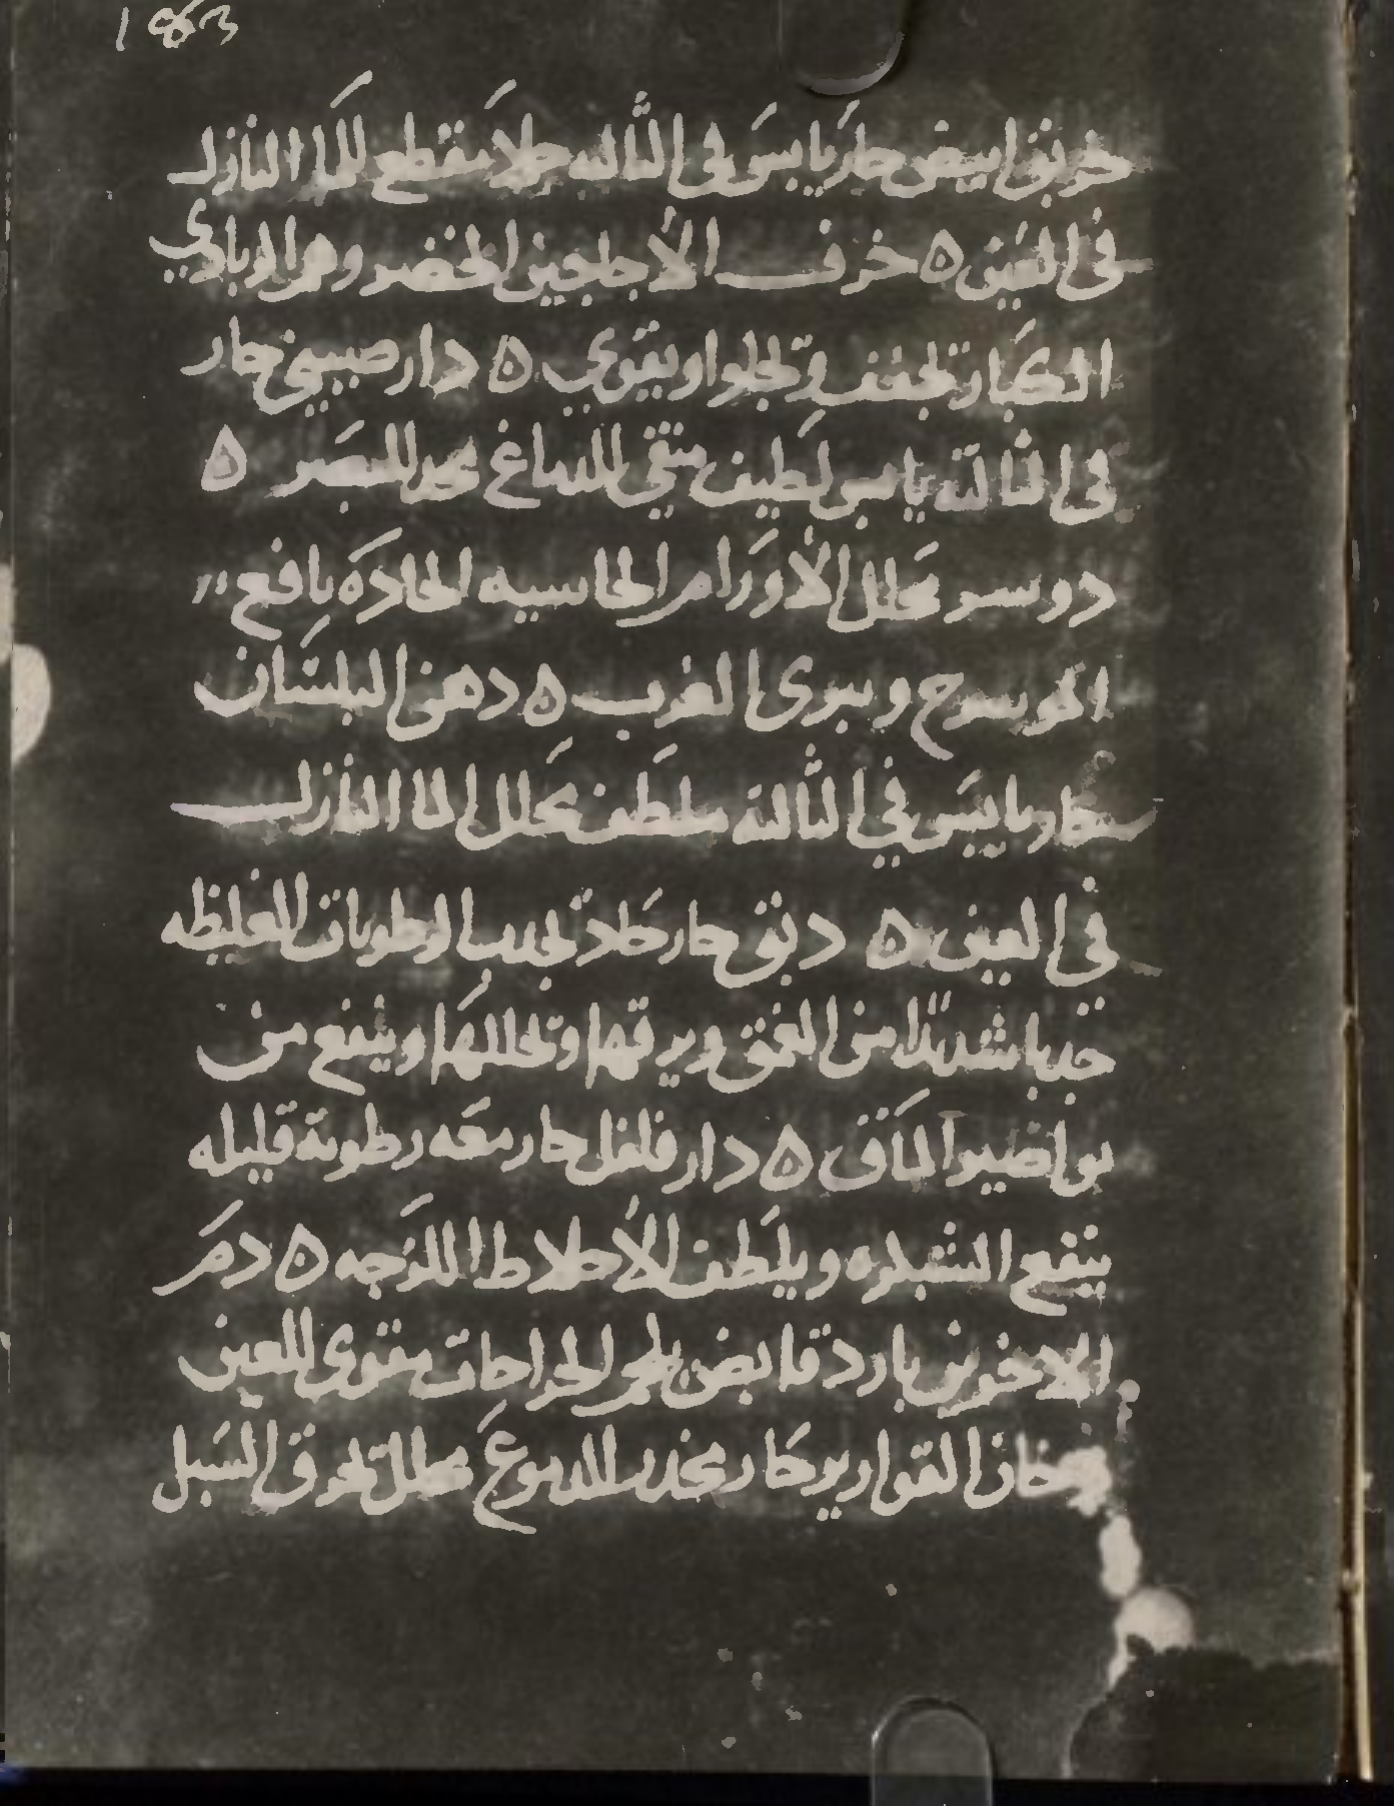 1863
خربق ابيض حار يابس فى الثالثه جلا مقطع للما النازل
فى العين ٥ خزف الأجاجين الخضر وهو الزبادي
الكبار تجفف وتجلوا ويقوي ٥ دار صيني حار
فى الثالثة يابس لطيف منقي للدماغ محد للبصر ٥
دوسر محلل الأورام الجاسيه الحاده نافع
ويبرى الغرب ٥ دهن البلسان
حار يابس في الثالثة ملطف محلل الما النازل
فى العين ٥ دبق حار جلا تجذب الرطوبات الغليظه
جذبا شديدا من العمق ويرقها وتحللها وينفع من
نواصير المآق ٥ دار فلفل حار معه رطوبة قليله
ينفع الشبكره ويلطف الأخلاط اللزجه ٥ دم
الاخوين بارد قابض يلحم الجراحات مقوى للعين
دخان القوارير حار مجفف للدموع محلل تحرق السبل